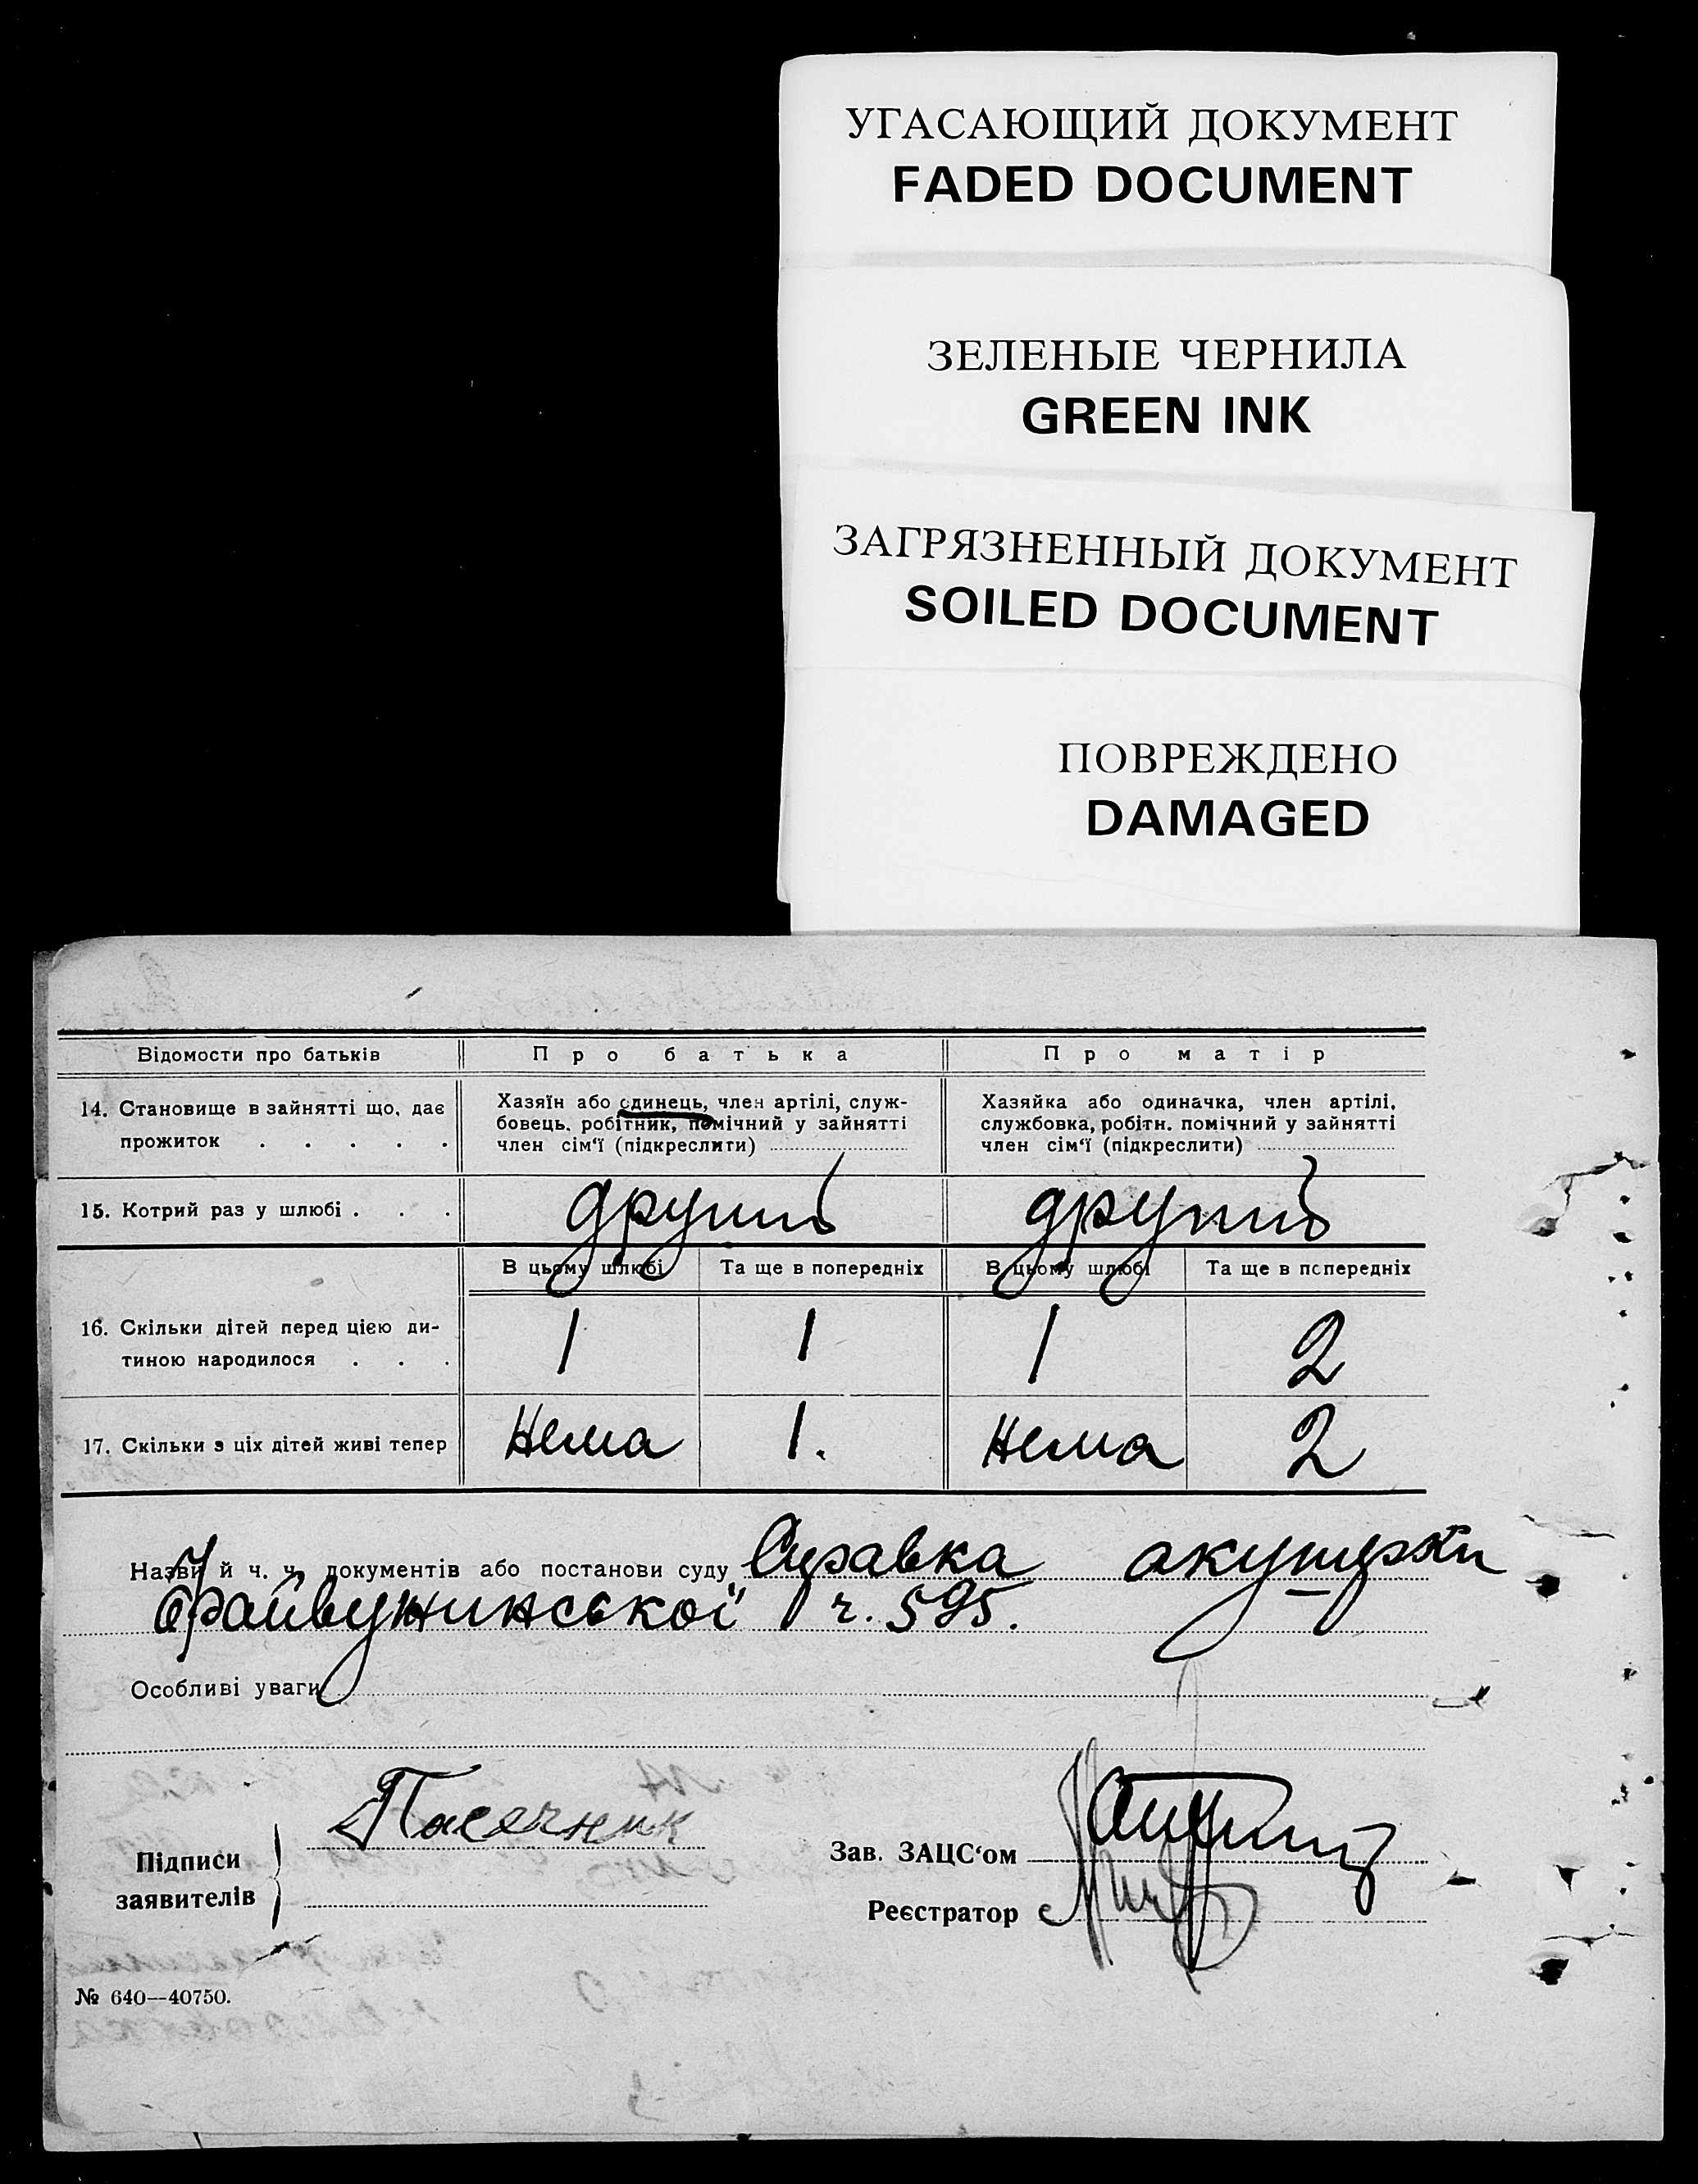 УГАСАЮЩИЙ ДОКУМЕНТ
FADED DOCUMENT
ЗЕЛЕНЫЕ ЧЕРНИЛА
GREEN INK
ЗАГРЯЗНЕННЫЙ ДОКУМЕНТ
SOILED DOCUMENT
ПОВРЕЖДЕНО
DAMAGED
Відомости про батьків Про батька Про матір
14. Становище в зайнятті що, дає прожиток . . . . .
Хазяїн або одинець, член артілі, служ-
бовець. робітник, помічний у зайнятті
член сім'ї (підкреслити)
Хазяйка або одиначка, член артілі,
службовка, робітн. помічний у зайнятті
член сім'ї (підкреслити)
15. Котрий раз у шлюбі . . . другий другий
В цьому шлюбі Та ще в попередніх В цьому шлюбі Та ще в попередніх
16. Скільки дітей перед цією ди-
тиною народилося . . . 1 1 1 2
17. Скільки з ціх дітей живі тепер Нема 1. Нема 2
Назви й ч. ч. документів або постанови суду Справка акушерки
ч. 595.
Особливі уваги
Пасечник
Підписи
заявителів
Зав. ЗАЦС'ом
Реєстратор
№ 640—40750.